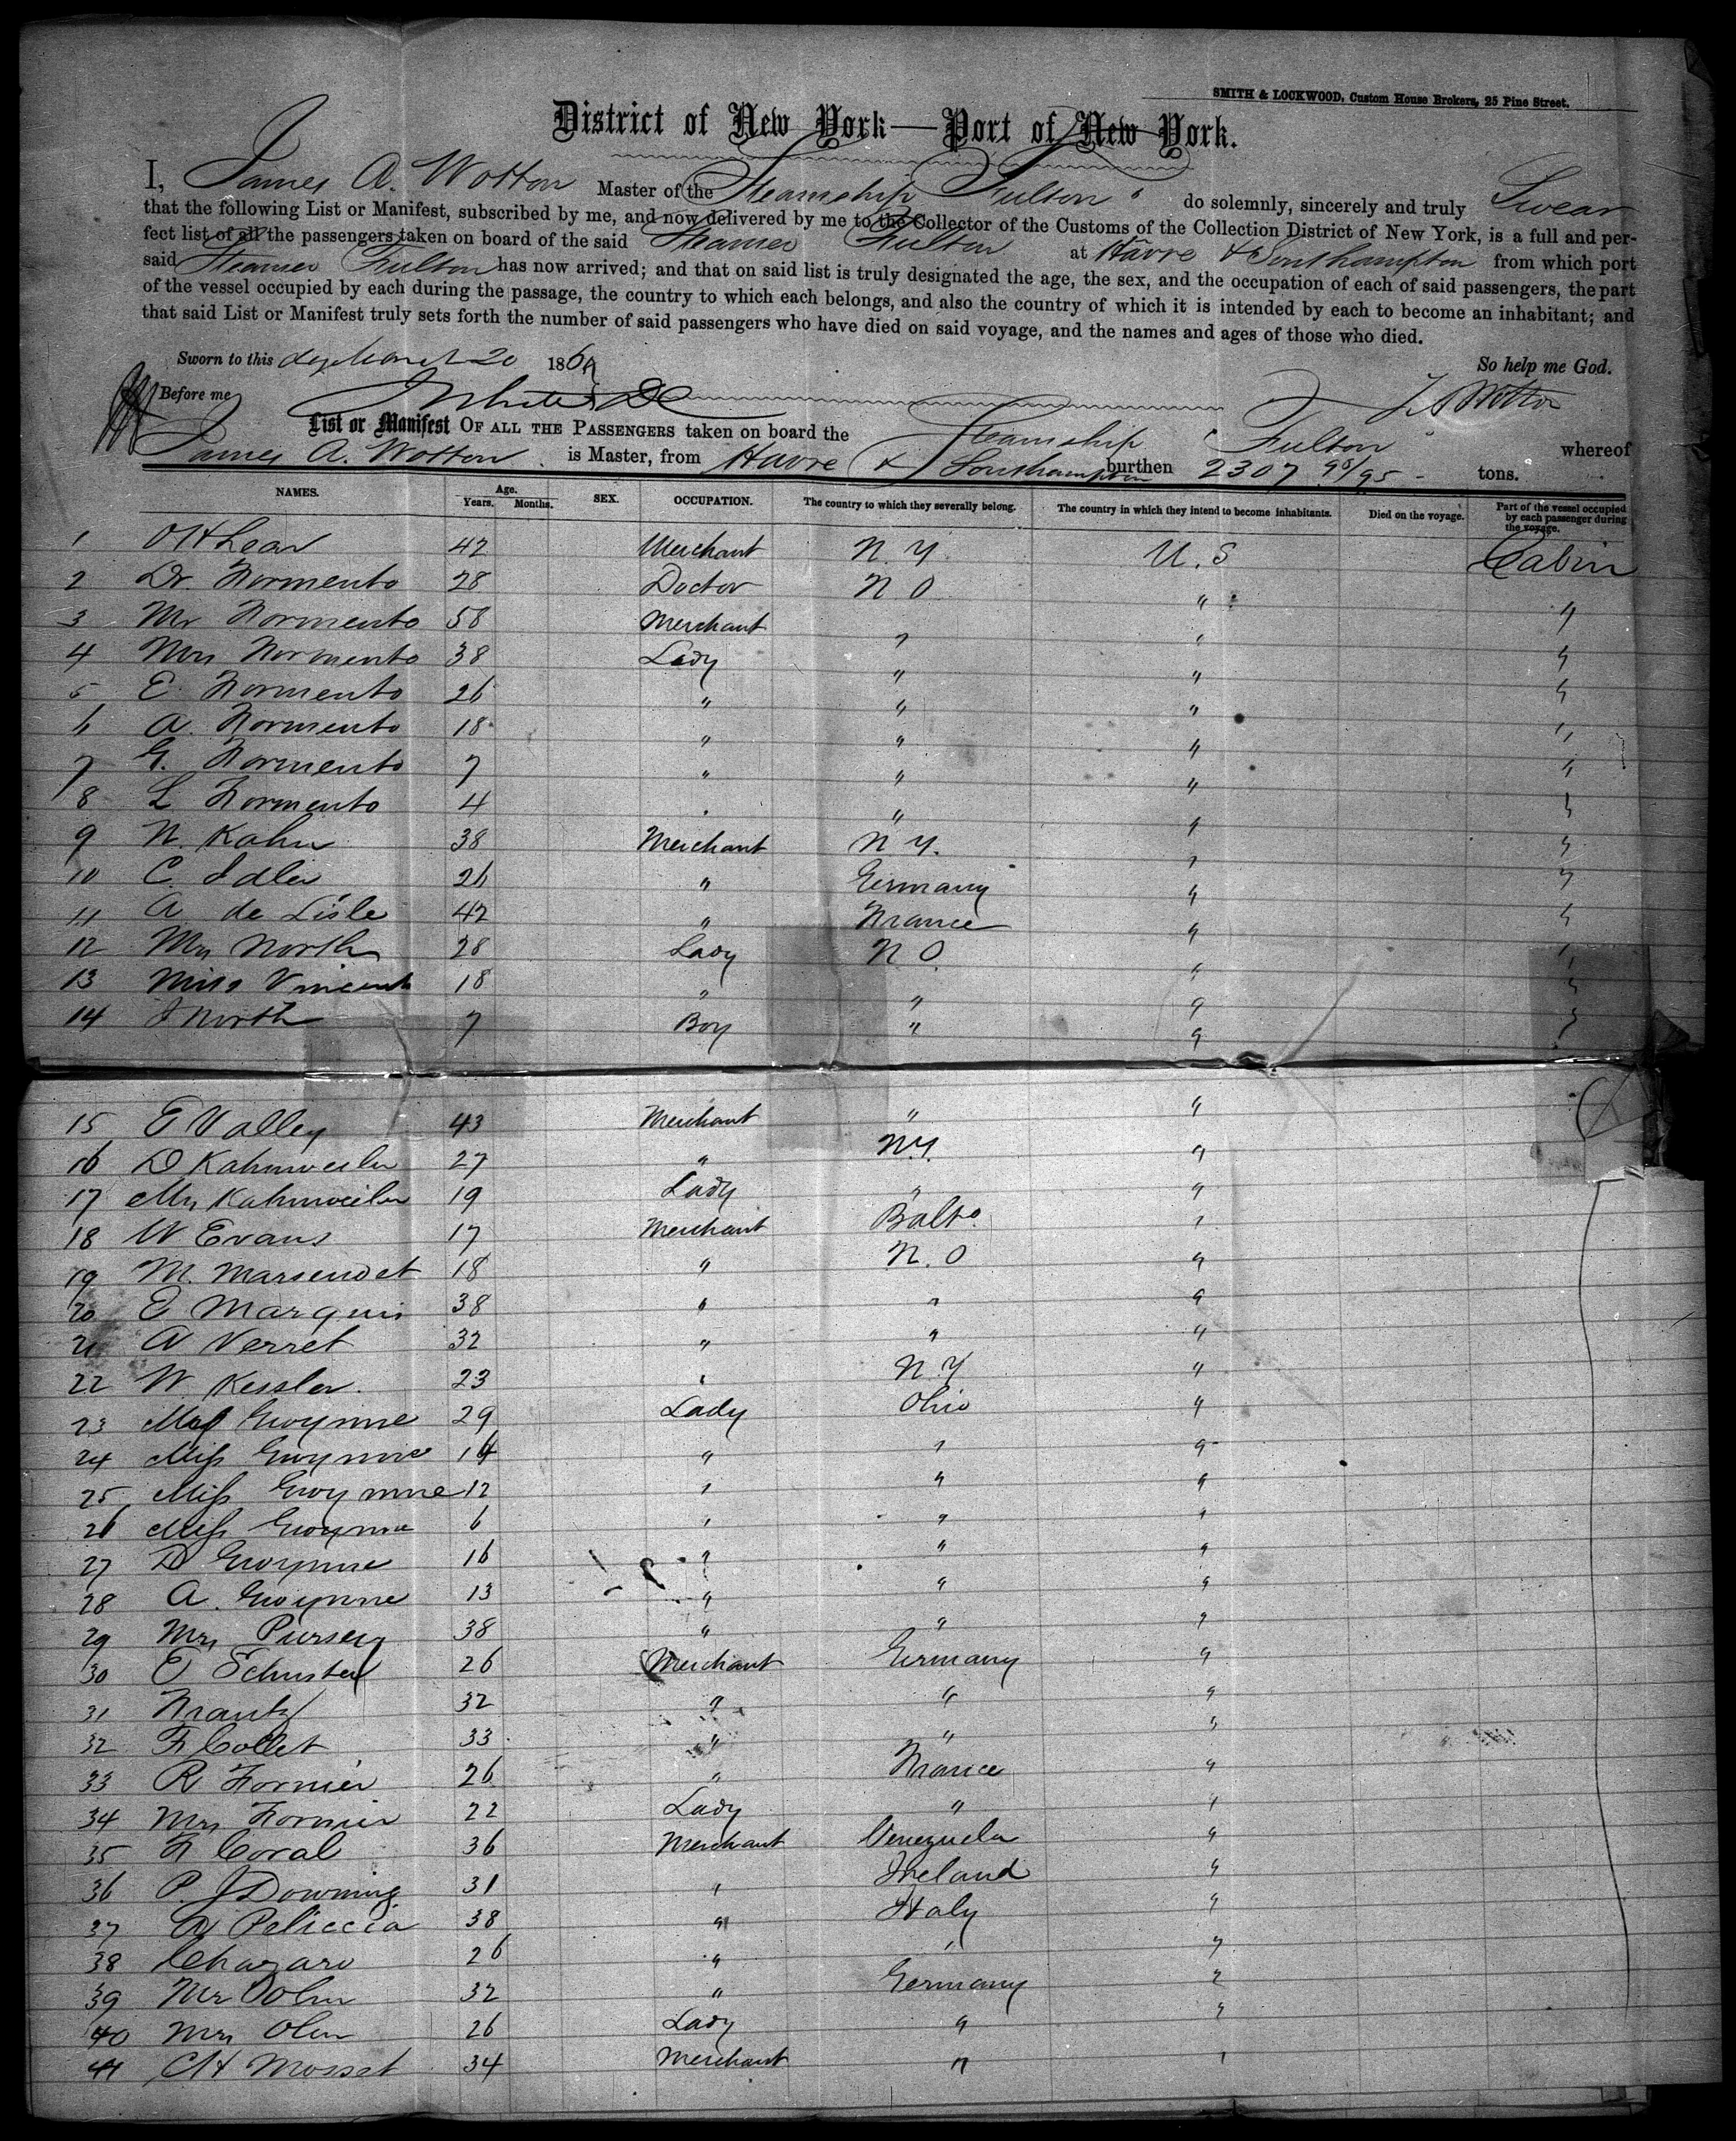 SMITH & LOCKWOOD, Custom House Brokers, 25 Pine Street.
District of New York—Port of New York.
I, James A. Wotton Master of the Steamship Fulton do solemnly, sincerely and truly Swear
that the following List or Manifest, subscribed by me, and now delivered by me to the Collector of the Customs of the Collection District of New York, is a full and per-
fect list of all the passengers taken on board of the said Steamer Fulton at Havre & Southampton from which port
said Steamer Fulton has now arrived; and that on said list is truly designated the age, the sex, and the occupation of each of said passengers, the part
of the vessel occupied by each during the passage, the country to which each belongs, and also the country of which it is intended by each to become an inhabitant; and
that said List or Manifest truly sets forth the number of said passengers who have died on said voyage, and the names and ages of those who died.
Sworn to this March 20 186 So help me God.
Before me J A Wotton
List or Manifest OF ALL THE PASSENGERS taken on board the Steamship "Fulton" whereof
James A. Wotton is Master, from Havre & Southampton burthen 2307 95/95 tons.
NAMES. Age. Years. Months. SEX. OCCUPATION. The country to which they severally belong. The country in which they intend to become inhabitants. Died on the voyage. Part of the vessel occupied by each passenger during the voyage.
1 O H Lear 42 Merchant N. Y. U. S Cabin
2 Dr. Formento 28 Doctor N O " "
3 Mr Formento 58 Merchant " " "
4 Mrs Formento 38 Lady " " "
5 E. Formento 26 " " " "
6 A. Formento 18 " " " "
7 G. Formento 7 " " " "
8 L Formento 4 " " " "
9 N. Kahn 38 Merchant N Y. " "
10 C. Idler 26 " Germany " "
11 A de Lisle 42 " France " "
12 Mrs North 28 Lady N O. " "
13 Miss Vincent 18 " " " "
14 J North 7 Boy " " "
15 E Valley 43 Merchant " "
16 D Kahnweiler 27 " N.Y. "
17 Mrs Kahnweiler 19 Lady " "
18 W Evans 17 Merchant Balto. "
19 M. Marsendet 18 " N. O "
20 E Marquis 38 " " "
21 A Verret 32 " " "
22 W. Kessler. 23 " N. Y "
23 Gwynne 29 Lady Ohio "
24 Miss Gwynne 14 " " "
25 Miss Gwynne 12 " " "
26 Miss Gwynne 6 " " "
27 D Gwynne 16 " " "
28 A. Gwynne 13 " " "
29 Mrs Pursey 38 " " "
30 E Schuster 26 Merchant Germany "
31 Frantz 32 " " "
32 F Collet 33 " " "
33 R Fornier 26 " France "
34 Mrs Fornier 22 Lady " "
35 F Coral 36 Merchant Venezuela "
36 P. J Downing 31 " Ireland "
37 A Peliccia 38 " Italy "
38 Chazaro 26 " " "
39 Mr Ohn 32 " Germany "
40 Mrs Ohn 26 Lady " "
41 C H Mosset 34 Merchant " "